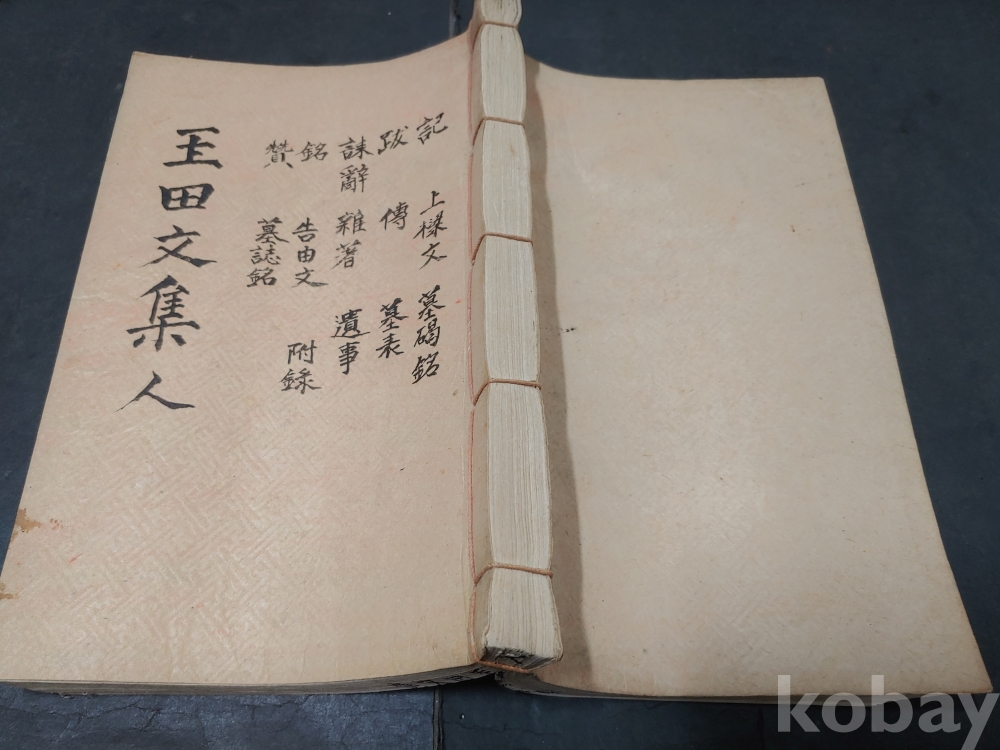 玉田文集 人
記 上樑文 墓碣銘
跋 傳 墓表
誄辭 雜著 遺事
銘 告由文 附錄
贊 墓誌銘
kobay